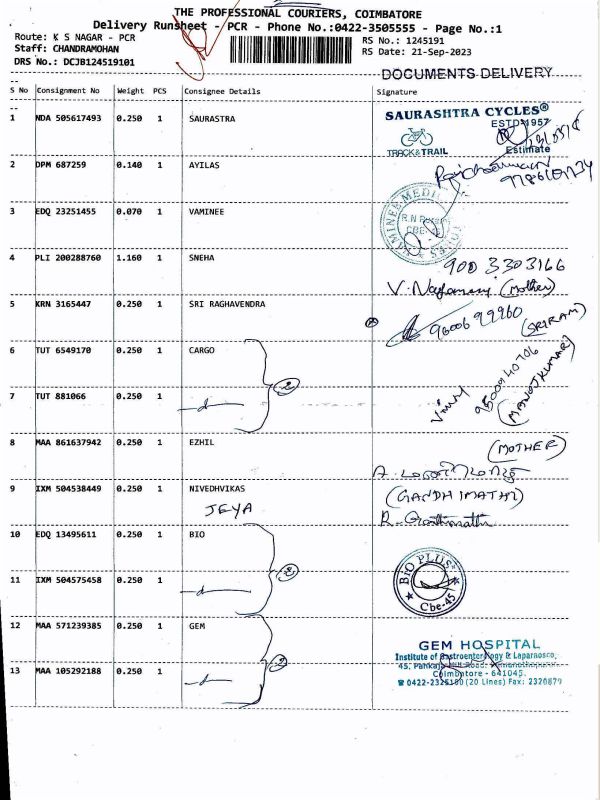 THE PROFESSIONAL COURIERS, COIMBATORE
Delivery Runsheet - PCR - Phone No.:0422-3505555 - Page No.:1
Route: K S NAGAR - PCR
RS No.: 1245191
Staff: CHANDRAMOHAN
RS Date: 21-Sep-2023
DRS No.: DCJB124519101
DOCUMENTS DELIVERY
S No Consignment No Weight PCS Consignee Details Signature
1 NDA 505617493 0.250 1 SAURASTRA
SAURASHTRA CYCLES®
ESTD 1957
TRACK&TRAIL Estimate
2 DPM 687259 0.140 1 AYILAS
3 EDQ 23251455 0.070 1 VAMINEE
4 PLI 200288760 1.160 1 SNEHA
900 3303166
V. (Mother)
5 KRN 3165447 0.250 1 SRI RAGHAVENDRA
9600699960
(SRIRAM)
6 TUT 6549170 0.250 1 CARGO
2
9500940706
(MANOJKUMAR)
7 TUT 881066 0.250 1
8 MAA 861637942 0.250 1 EZHIL
(MOTHER)
9 IXM 504538449 0.250 1 NIVEDHVIKAS
JEYA
(GANDHIMATHI)
10 EDQ 13495611 0.250 1 BIO
2
BIO PLUS
Cbe-45
11 IXM 504575458 0.250 1
12 MAA 571239385 0.250 1 GEM
2
GEM HOSPITAL
Institute of Gastroenterology & Laparosco
45, Pankaja Mill Road,
Coimbatore - 641045.
0422-2325100 (20 Lines) Fax: 2320879
13 MAA 105292188 0.250 1